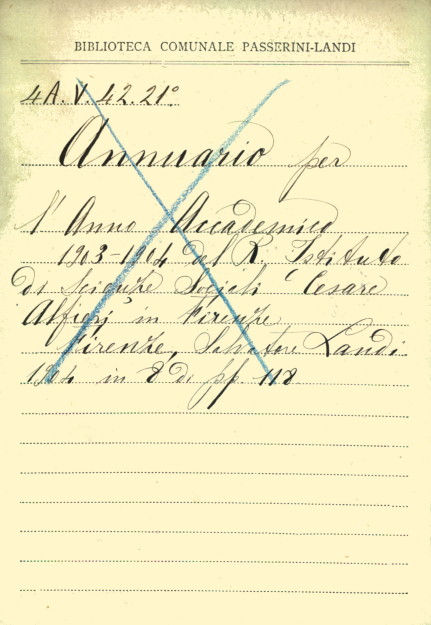 BIBLIOTECA COMUNALE PASSERINI-LANDI
4A.V.42.21°
Annuario per
l'Anno Accademico
1903-1904 del R. Istituto
di Scienze Sociali "Cesare
Alfieri" in Firenze
Firenze, Salvatore Landi
1904 in 8 di pp 118